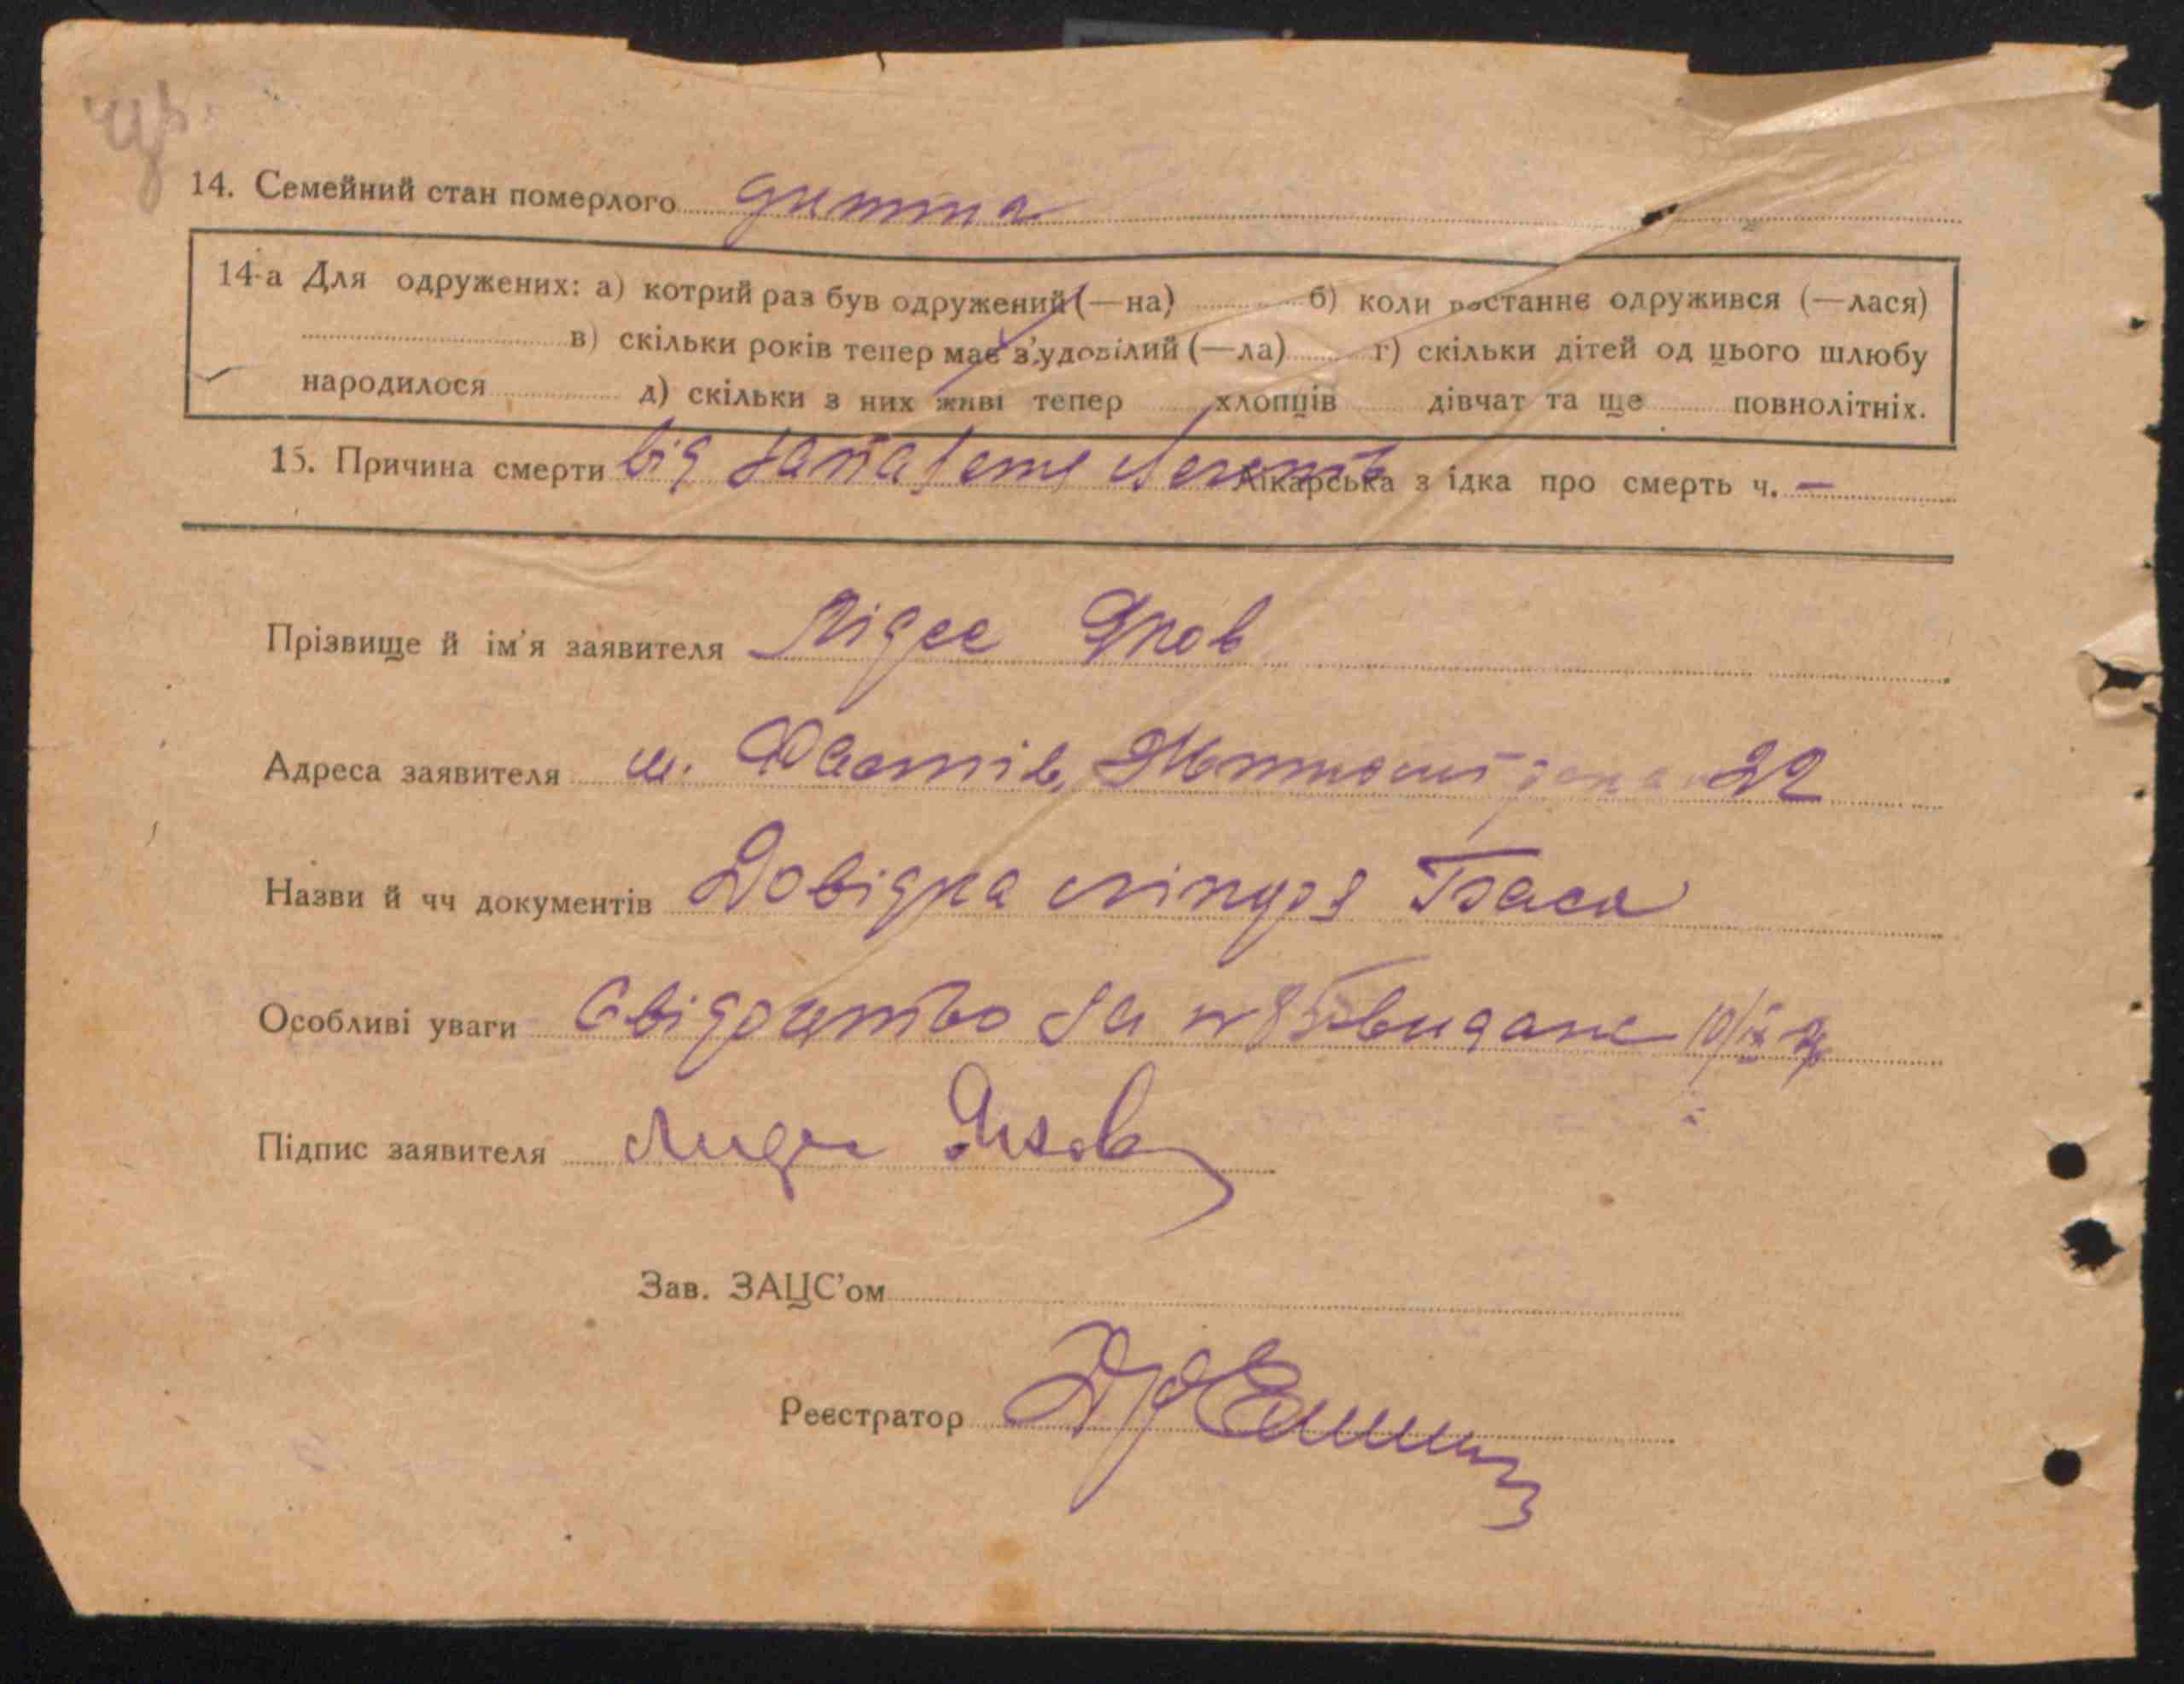 14. Семейний стан померлого дитина
14-а Для одружених: а) котрий раз був одружений (—на) б) коли востаннє одружився (—лася)
в) скільки років тепер має з'удовілий (—ла) г) скільки дітей од цього шлюбу
народилося д) скільки з них живі тепер хлопців дівчат та ще повнолітніх.
15. Причина смерти від запалення легенів Лікарська з ідка про смерть ч. —
Прізвище й ім'я заявителя Яков
Адреса заявителя м. Фастів, 22
Назви й чч документів Довідка
Особливі уваги Свідоцтво за № видане
Підпис заявителя Яков
Зав. ЗАЦС'ом
Реєстратор